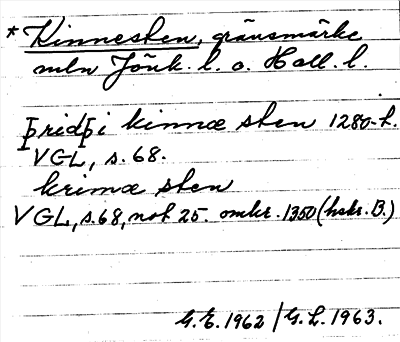 *Kinnesten, gränsmärke
mln Jönk. l. o. Hall. l.
[þrid]þi kinnæ sten 1280-t.
VGL, s. 68.
krimæ sten
VGL, s. 68, not 25. omkr. 1350 (hskr. B.)
G.E. 1962 / G.L. 1963.